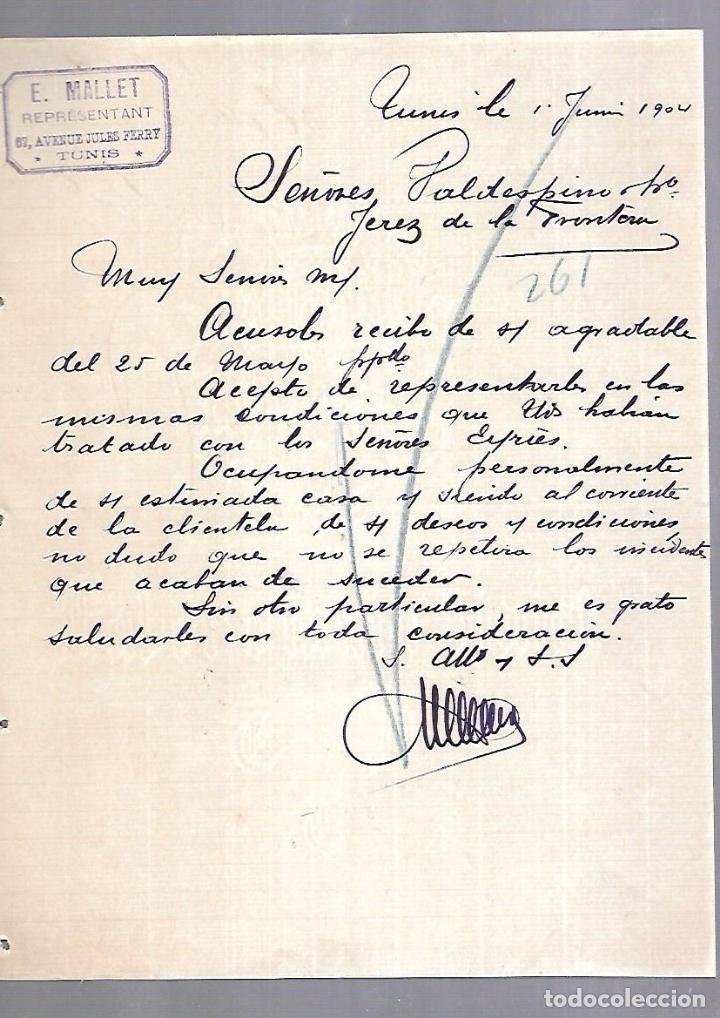 E. MALLET
REPRÉSENTANT
67, AVENUE JULES FERRY
* TUNIS *
Tunis le 1 Juin 1904
Señores Valdespino y Ho
Jerez de la Frontera
261
Muy Señores my.
Acusoles recibo de su agradable
del 25 de Mayo ppdo
Acepto de representarles en las
mismas condiciones que Uds habian
tratado con los Señores Eyriès.
Ocupandome personalmente
de su estimada casa y siendo al corriente
de la clientela, de su deseos y condiciones,
no dudo que no se repetira los incidentes
que acaban de suceder.
Sin otro particular, me es grato
saludarles con toda consideración.
S. Atto y S.S
todocoleccion.net